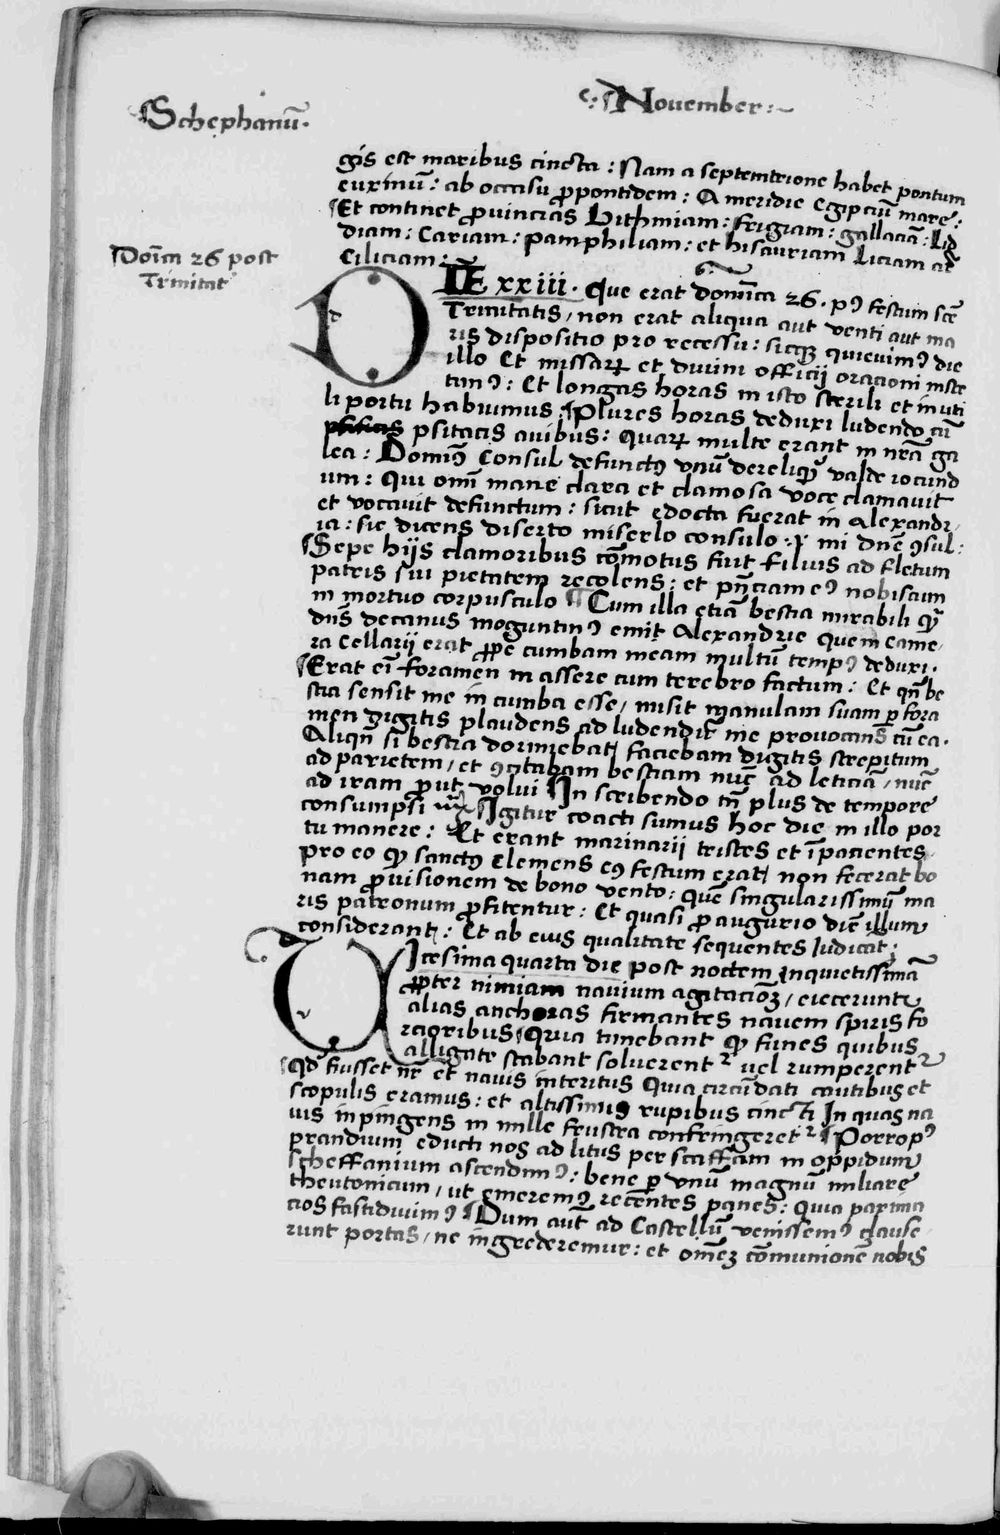 Schephanū.
November:~
gis est maribus cincta: Nam a septemtrione habet pontum
euxinū: ab occasu ꝓpontidem: A meridie Egipciū mare:
Et continet ꝓuincias Bithiniam: frigiam: gallaciā: Lid
diam: Cariam: pamphiliam: et hisauriam Liciam atꝫ
Ciliciam:
Doīca 26 post
Trinitatꝭ
DIE xxiii. Que erat domīca 26. pꝰ festum scē
Trinitatis, non erat aliqua aut venti aut ma
ris dispositio pro recessu: sicqꝫ quieuimꝰ die
illo Et missarꝝ et diuini officij oracioni inste
timꝰ: Et longas horas in isto sterili et inuti
li portu habuimus. Plures horas deduxi ludendo cū
psitacis auibus: quarꝝ multe erant in nrā ga
lea: Dominꝰ Consul defunctꝰ vnū dereliqͥt valde iocund
um: Qui omī mane clara et clamosa voce clamauit
et vocauit defunctum: sicut edocta fuerat in Alexandr
ia: sic dicens diserto miserlo consulo: mi dnē ꝯsul:
Sepe hijs clamoribus cōmotus fuit filius ad fletum
patris sui pietatem recolens: et pn̄ciam eꝰ nobiscum
in mortuo corpusculo Cum illa etiā bestia mirabili qͣ
dn̄s decanus moguntinꝰ emit Alexandrie quem came
ra cellarii erat ꝓpe cumbam meam multū tempꝰ deduxi.
Erat eī foramen in assere cum terebro factum: Et qn̄ be
stia sensit me in cumba esse, misit manulam suam ꝑ fora
men digitis plaudens ad ludendū me prouocans cū ea.
Aliqn̄ si bestia dormiebat faciebam digitis strepitum
ad parietem, et ꝯcitabam bestiam nūc ad leticiā, nūc
ad iram prout volui In scribendo tn̄ plus de tempore
consumpsi Igitur coacti sumus hoc die in illo por
tu manere: Et erant marinarii tristes et īpacientes
pro eo ꝙ sanctꝰ Clemens eꝰ festum erat non fecerat bo
nam ꝓuisionem de bono vento: quē singularissimū ma
ris patronum ꝓfitentur: Et quasi ꝓ augurio diē illum
considerant: Et ab eius qualitate sequentes Iudicāt:
VIcesima quarta die post noctem inquietissimā
ꝓpter nimiam nauium agitacionē, eiecerunt
alias anchoras firmantes nauem spiris fo
rcioribus Quia timebant ꝙ funes quibus
alligate stabant soluerentᷣ uel rumperentᷣ
Qd̄ fuisset nr̄ et nauis interitus Quia circūdati cautibus et
scopulis eramus: et altissimis rupibus cincti In quas na
uis inpingens in mille frustra confringeretᷣ Porro pꝰ
prandium educti nos ad litus per scaffam in oppidum
scheffanium ascendimꝰ: bene ꝑ vnū magnū miliare
theutonicum, ut emeremꝰ recentes panes: Quia paxima
cios fastidiuimꝰ Dum aut̄ ad Castellū venissemꝰ clause
runt portas, ne ingrederemur: et omēꝫ cōmunionē nobis